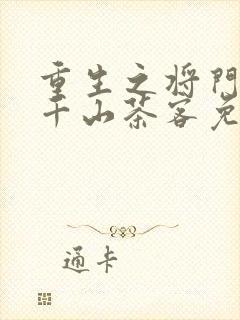 重生之将门
千山茶客免
通卡